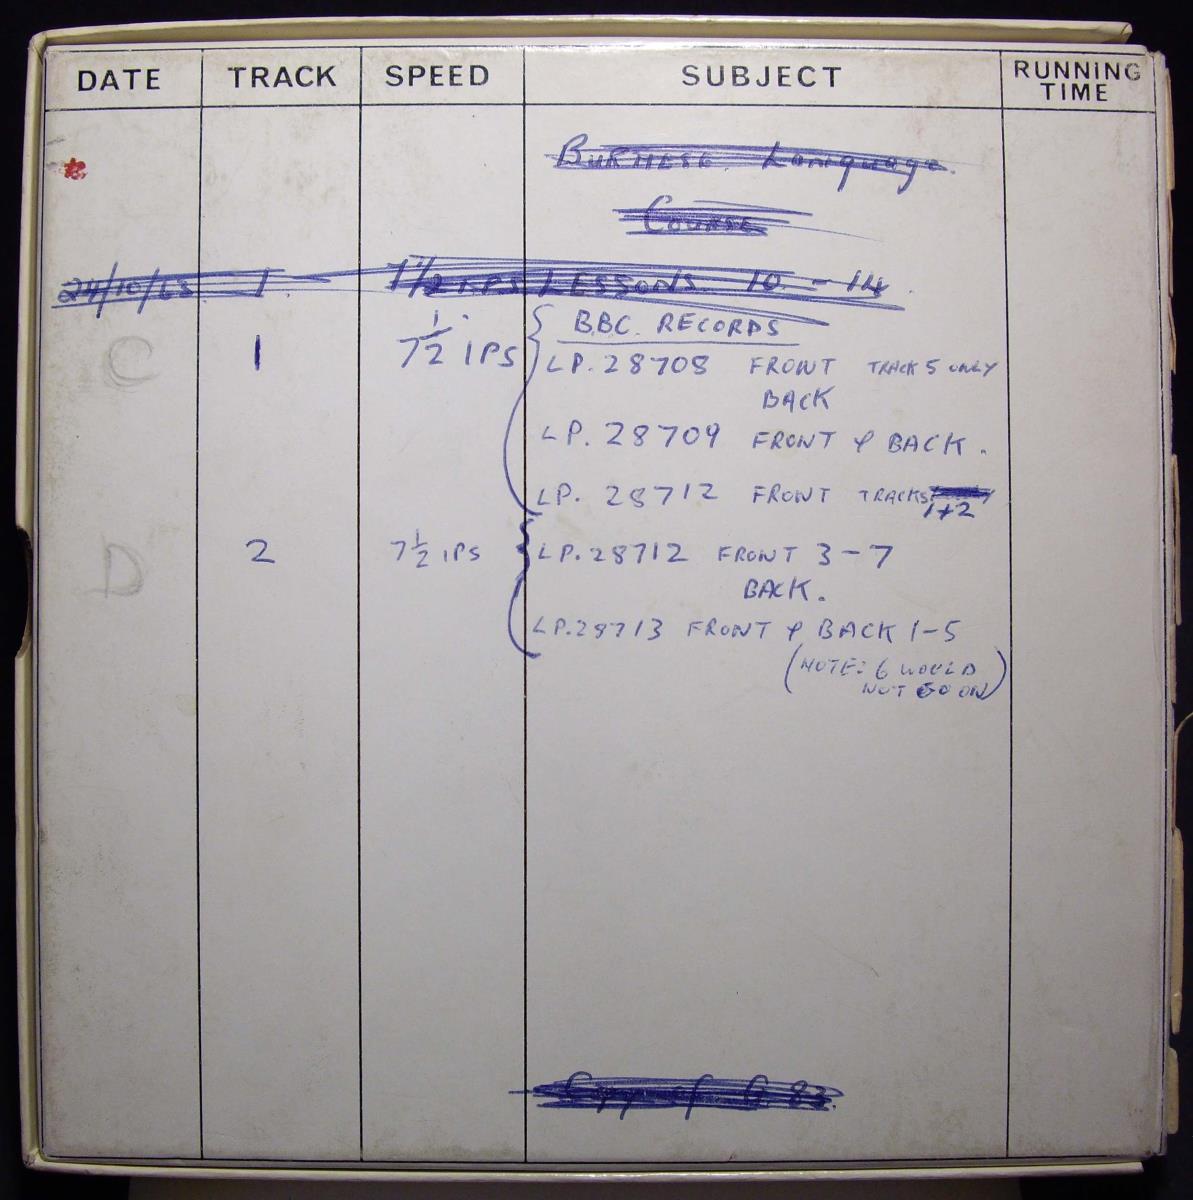 DATE TRACK SPEED SUBJECT RUNNING TIME
Burmese Language
Course
24/10/65 1 7 1/2 IPS LESSONS 10 - 14
BBC RECORDS
C 1 7 1/2 IPS LP. 28708 FRONT TRACK 5 ONLY
BACK
LP. 28709 FRONT & BACK.
LP. 28712 FRONT TRACKS
1+2
D 2 7 1/2 IPS LP. 28712 FRONT 3-7
BACK.
LP. 28713 FRONT & BACK 1-5
(NOTE: 6 WOULD
NOT GO ON)
Copy of G 83.